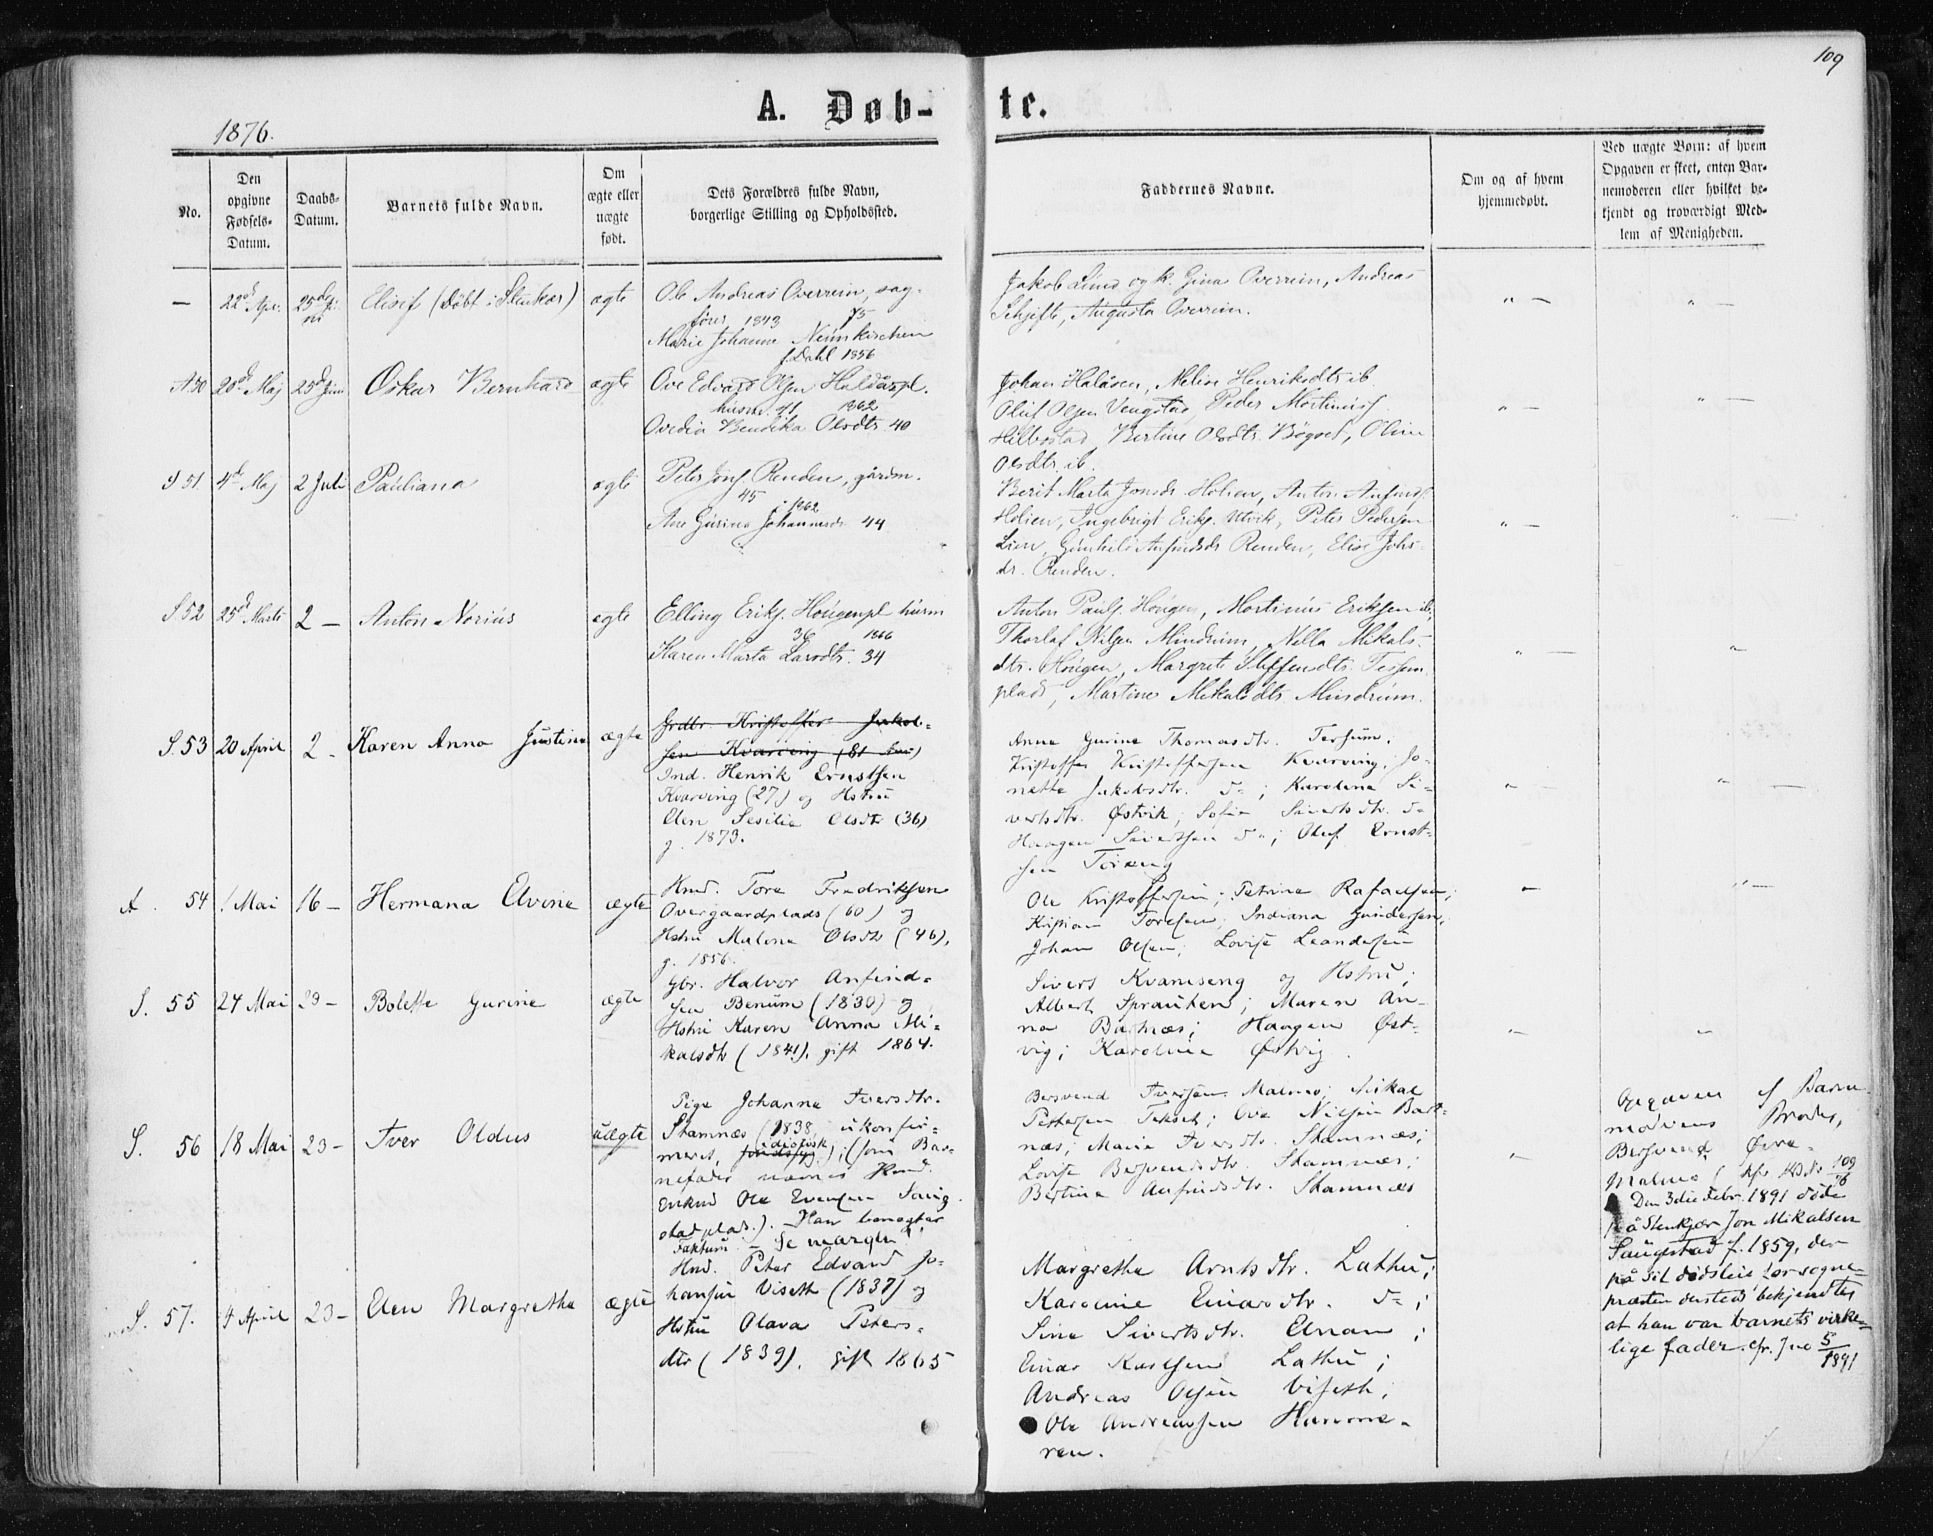 109
A. Døb-
te.
1876.
No.
Den
opgivne
Fødsels-
Datum.
Daabs-
Datum.
Barnets fulde Navn.
Om
ægte eller
uægte
født.
Dets Forældres fulde Navn,
borgerlige Stilling og Opholdssted.
Faddernes Navne.
Om og af hvem
hjemmedøbt.
Ved uægte Børn: af hvem
Opgaven er skeet, enten Bar-
nemoderen eller hvilket be-
kjendt og troværdigt Med-
lem af Menigheden.
— 22d Apr. Elisif (Døbt i Stenkær) ægte
Ole Andreas Overrein, sag-
fører 1843 75
Marie Johanne
f. Dahl 1856
Jakob Lund og k. Gina Overrein, Andreas
Schjefte, Augusta Overrein.
A 50 20d Maj 25d Juni Oskar Bernhard ægte
Ove Edvard Olsen Haldåspl.
husm. 41 1862
Ovedia Bendika Olsdtr. 40
Johan Halåsen, Meline Henriksdtr ib.
Oluf Olsen Vengstad, Peder Mortinusf.
Hilbostad, Bertine Olsdtr. Bøgset, Oline
Olsdtr. ib.
S 51. 4d Maj 2 Juli Pauliana ægte
Peter Jonsf. Renden, gårdm.
45 1862
Ane Gurina Johannesdr. 44
Berit Marta Jonsdr. Holien, Anton Anfindsf.
Holien, Ingebrigt Eriksf. Utvik, Peter Pedersen
Lien, Gunhild Anfindsdr Renden, Elise Johs-
dr. Renden.
S 52 25d Marts 2 — Anton Norius ægte
Elling Eriksf. Hougenpl. husm
36 1866
Karen Marta Larsdtr. 34
Anton Paulsf. Hougen, Mortinus Eriksen ib,
Thorlaf Nilsen Mindrum, Nella Mikals-
dtr. Hougen, Margrete Steffensdtr. Tessem
plads, Martine Mikalsdtr Mindrum.
S. 53 20 April 2 - Karen Anna Justine ægte
Grdbr. Kristoffer Jakob-
sen Kvarving (81 Aar)
Ind. Henrik Ernstsen
Kvarving (27) og Hstru
Elen Sesilie Olsdtr (36)
g. 1873.
Anne Gurine Thomasdtr. Tessum;
Kristoffer Kristoffersen Kvarving; Jo-
nette Jakobsdtr. do; Karolina Si-
vertsdtr. Østvik; Sofie Sivertsdtr. do
Haagen Sivertsen do; Oluf Ernst-
sen
A. 54 1 Mai 16 — Hermana Elvine ægte
Hmd. Tore Fredriksen
Overgaardplads (60) og
Hstru Malena Olsdtr (46),
g. 1856.
Ole Kristoffersen; Petrine Rafaelsen;
Kristian Toresen; Indiana Gundersen;
Johan Olsen; Lovise Leandersen
S. 55 24 Mai 29 — Bolette Gurine ægte
Gbr. Halvor Anfind-
sen Benum (1830) og
Hstru Karen Anna Mi-
kalsdtr (1841), gift 1864.
Sivert Kvamseng og Hstru;
Albert Sprauten; Maren An-
na Bartnæs; Haagen Øst-
vig; Karoline Østvig.
S. 56 18 Mai 23 — Iver Oldus uægte
Pige Johanna Iversdtr.
Stamnæs (1838, ukonfir-
meret, idiotisk); (som Bar-
nefader nævnes Hmd.
Enkmd Ole Evensen Saug-
stadplads.). — Han benægter
Faktum. — Se margen!
Bersvend Iversen Malmo; Mikal
Pettersen Tekset; Ove Nilsen Bart-
næs; Marie Iversdtr. Stamnæs;
Lovise Bersvendsdtr. Stamnæs;
Bertina Anfindsdtr. Stamnæs
Opgaven af Barne-
moderens Broder,
Bersvend Øvre-
Malmo
Den 3die Febr. 1891 døde
på Stenkjær Jon Mikalsen
Saugestad f. 1859, der
på sit dødsleie for sogne-
præsten dersteds bekjendte,
at han var barnets virke-
lige fader. cfr. Jno 5/1891
S. 57. 4 April 23 — Elen Margrethe ægte
Hmd. Peter Edvard Jo-
hansen Viseth (1837) og
Hstru Olava Peters-
dtr (1839), gift 1865
Margrethe Arntsdtr. Lathu;
Karoline Einarsdtr. do;
Sine Sivertsdtr. Elnan;
Einar Karlsen Lathu;
Andreas Olsen Viseth;
Ole Andreassen Hamme-
ren.